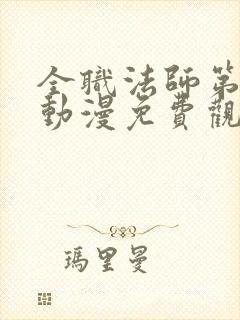 全職法師第
動漫免費觀
瑪里曼